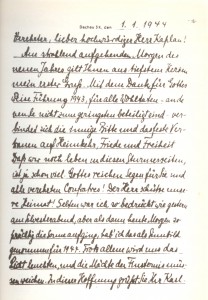 Sachau Nr. den 1. 1. 1944
Verehrter, lieber hochwürdiger Herr Kaplan!
Am strahlend aufgehenden Morgen des
neuen Jahres gilt Ihnen aus tiefstem Herzen
mein erster Gruß. Mit dem Dank für Gottes
Führung 1943, für alle Wohltaten
nicht zum geringsten beteiligt sind ver-
bindet sich die innige Bitte und das feste Ver-
trauen auf Heimkehr, Friede und Freiheit
Daß wir noch leben in diesen Sturmeszeiten,
ist ja schon viel Gottes reichen Segen für Sie und
alle verehrten Confratres! Der Herr schütze unsre
Heimat! Selten war ich so bedrückt wie gestern
am Silvesterabend, aber als dann heute Morgen so
prächtig die Sonne aufging, hab ich das als Sinnbild
genommen für 1944. Trotz allem wird uns das
Licht leuchten, und die Mächte der Finsternis müs-
sen weichen. In dieser Hoffnung grüßt Sie Ihr Karl.